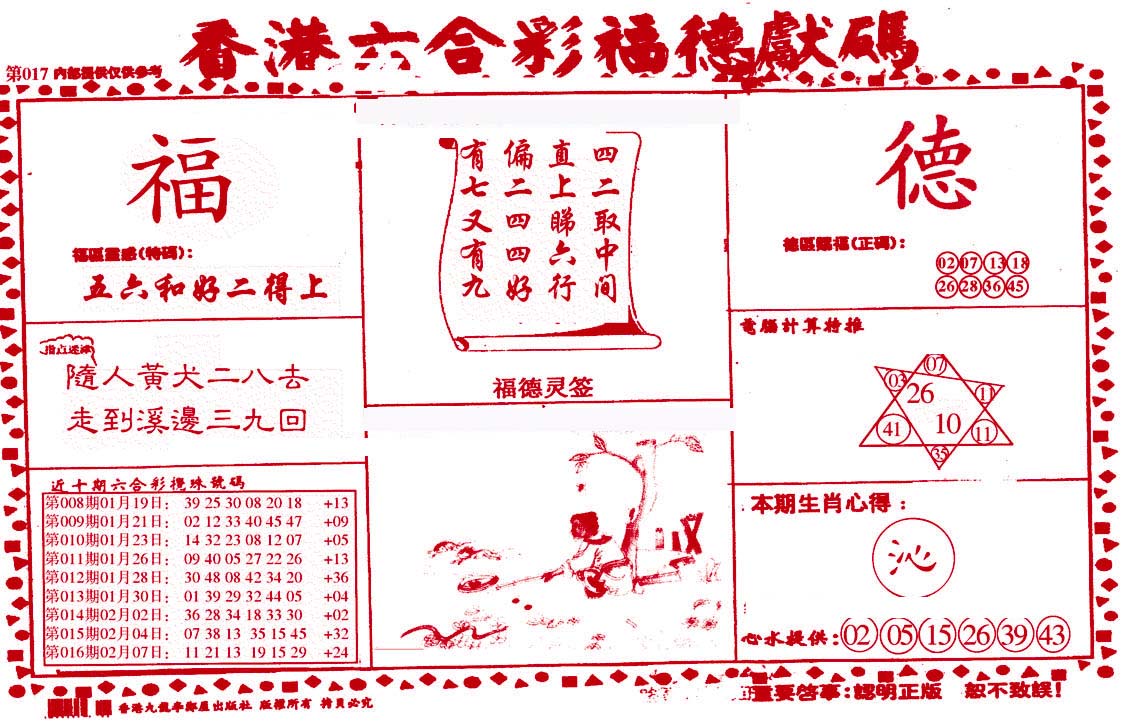 香港六合彩福德獻碼
第017 内部提供仅供参考
福
福區靈感(特碼):
五六和好二得上
指点迷津
隨人黃犬二八去
走到溪邊三九回
近十期六合彩攪珠號碼
第008期01月19日: 39 25 30 08 20 18 +13
第009期01月21日: 02 12 33 40 45 47 +09
第010期01月23日: 14 32 23 08 12 07 +05
第011期01月26日: 09 40 05 27 22 26 +13
第012期01月28日: 30 48 08 42 34 20 +36
第013期01月30日: 01 39 29 32 44 05 +04
第014期02月02日: 36 28 34 18 33 30 +02
第015期02月04日: 07 38 13 35 15 45 +32
第016期02月07日: 11 21 13 19 15 29 +24
四二取中间
直上睇六行
偏二四四好
有七又有九
福德灵签
德
德區賜福(正碼):
02 07 13 18
26 28 36 45
電腦計算特推
07
03 26 11
41 10 11
35
本期生肖心得:
沁
心水提供: 02 05 15 26 39 43
香港九龍 出版社 版權所有 拷貝必究
重要啓事:認明正版 恕不致誤!